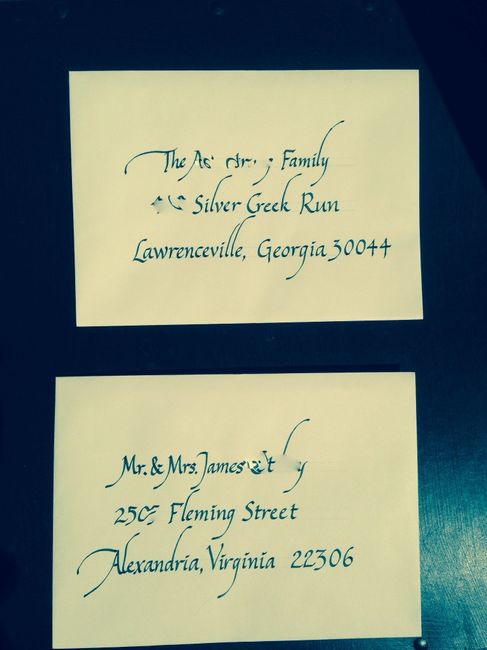 The Family
Silver Creek Run
Lawrenceville, Georgia 30044
Mr. & Mrs. James
Fleming Street
Alexandria, Virginia 22306